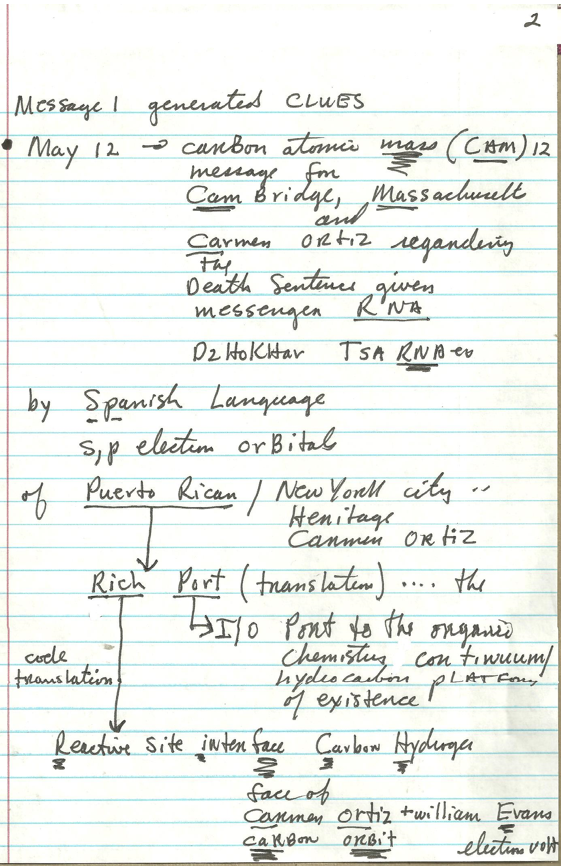 2
Message 1 generated CLUES
• May 12 → carbon atomic mass (CAM) 12
message for
CamBridge, Massachusett
and
Carmen ORtiz regarding
the
Death Sentence given
messenger RNA
DzHoKHar TSARNA-ev
by Spanish Language
s,p electron orBitals
of Puerto Rican / New York city
Heritage
Carmen ORtiz
Rich Port (translation) .... the
I/O Port to the organic
code
chemistry continuum/
translation
hydrocarbon PLATFORM
of existence
Reactive site interface Carbon Hydrogen
face of
Carmen Ortiz + william Evans
caRbon ORBIT electron volt